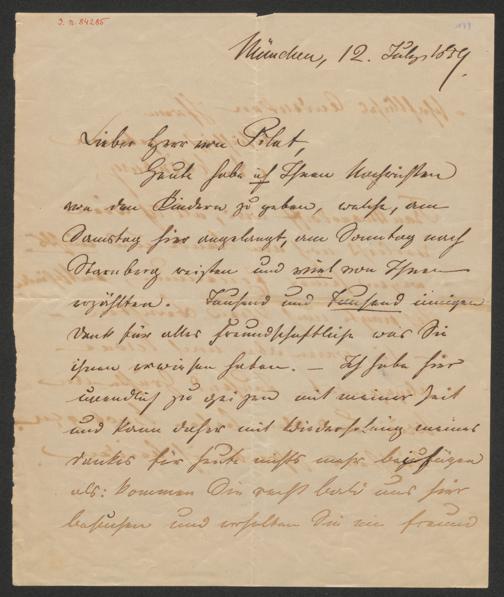 J. N. 84285
München, 12. July 1859.
Lieber Herr von Pilat,
Heute habe ich Ihnen Nachrichten
von den Kindern zu geben, welche, am
Samstag hier angelangt, am Sonntag nach
Starnberg reisten und viel von Ihnen
erzählten. Tausend und Tausend innigen
Dank für alles Freundschaftliche was Sie
ihnen erwiesen haben. – Ich habe hier
unendlich zu geizen mit meiner Zeit
und kann daher mit Wiederholung meines
Dankes für heute nichts mehr beifügen
als: kommen Sie recht bald uns hier
besuchen und erhalten Sie in freund